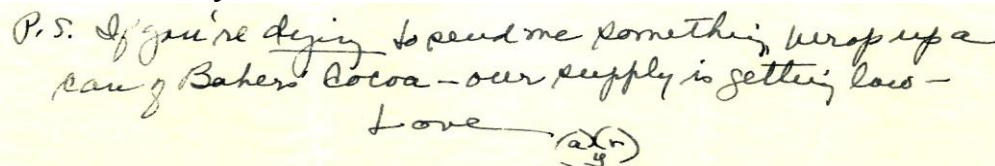 P.S. If you're dying to send me something, wrap up a
can of Bakers Cocoa – our supply is getting low –
Love